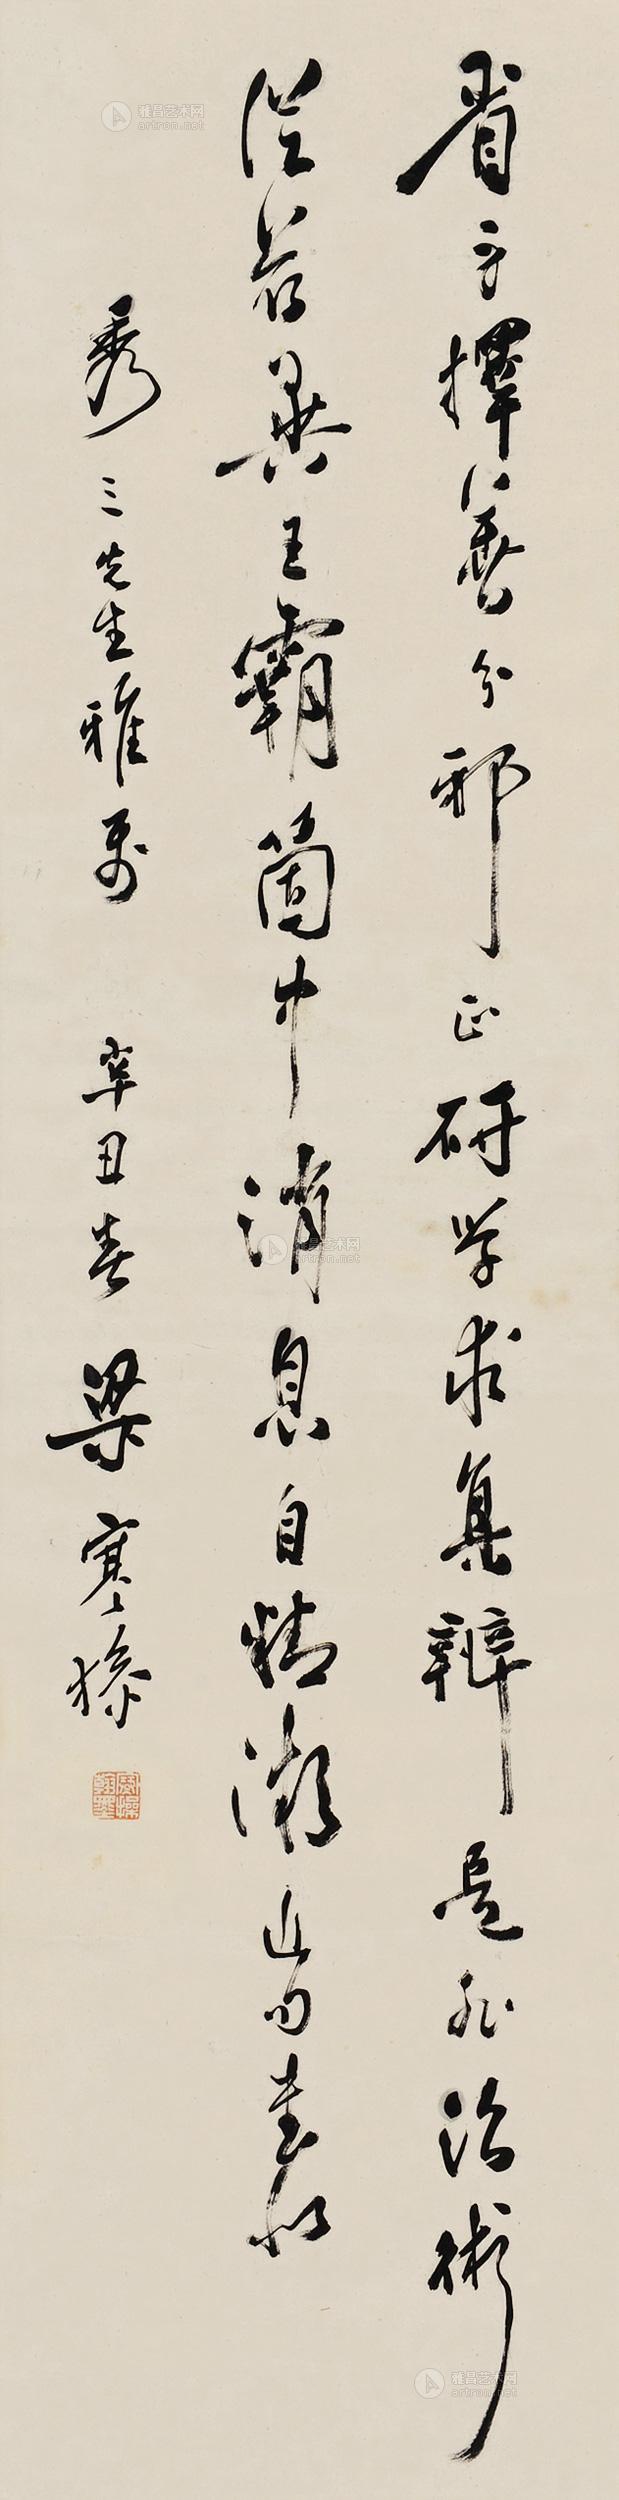 省身擇善分邪正研学求真辨是非治術
從茲異王霸箇中消息自精微
秀三先生雅属 辛丑春 梁寒操
雅昌艺术网
artron.net
雅昌艺术网
artron.net
雅昌艺术网
artron.net